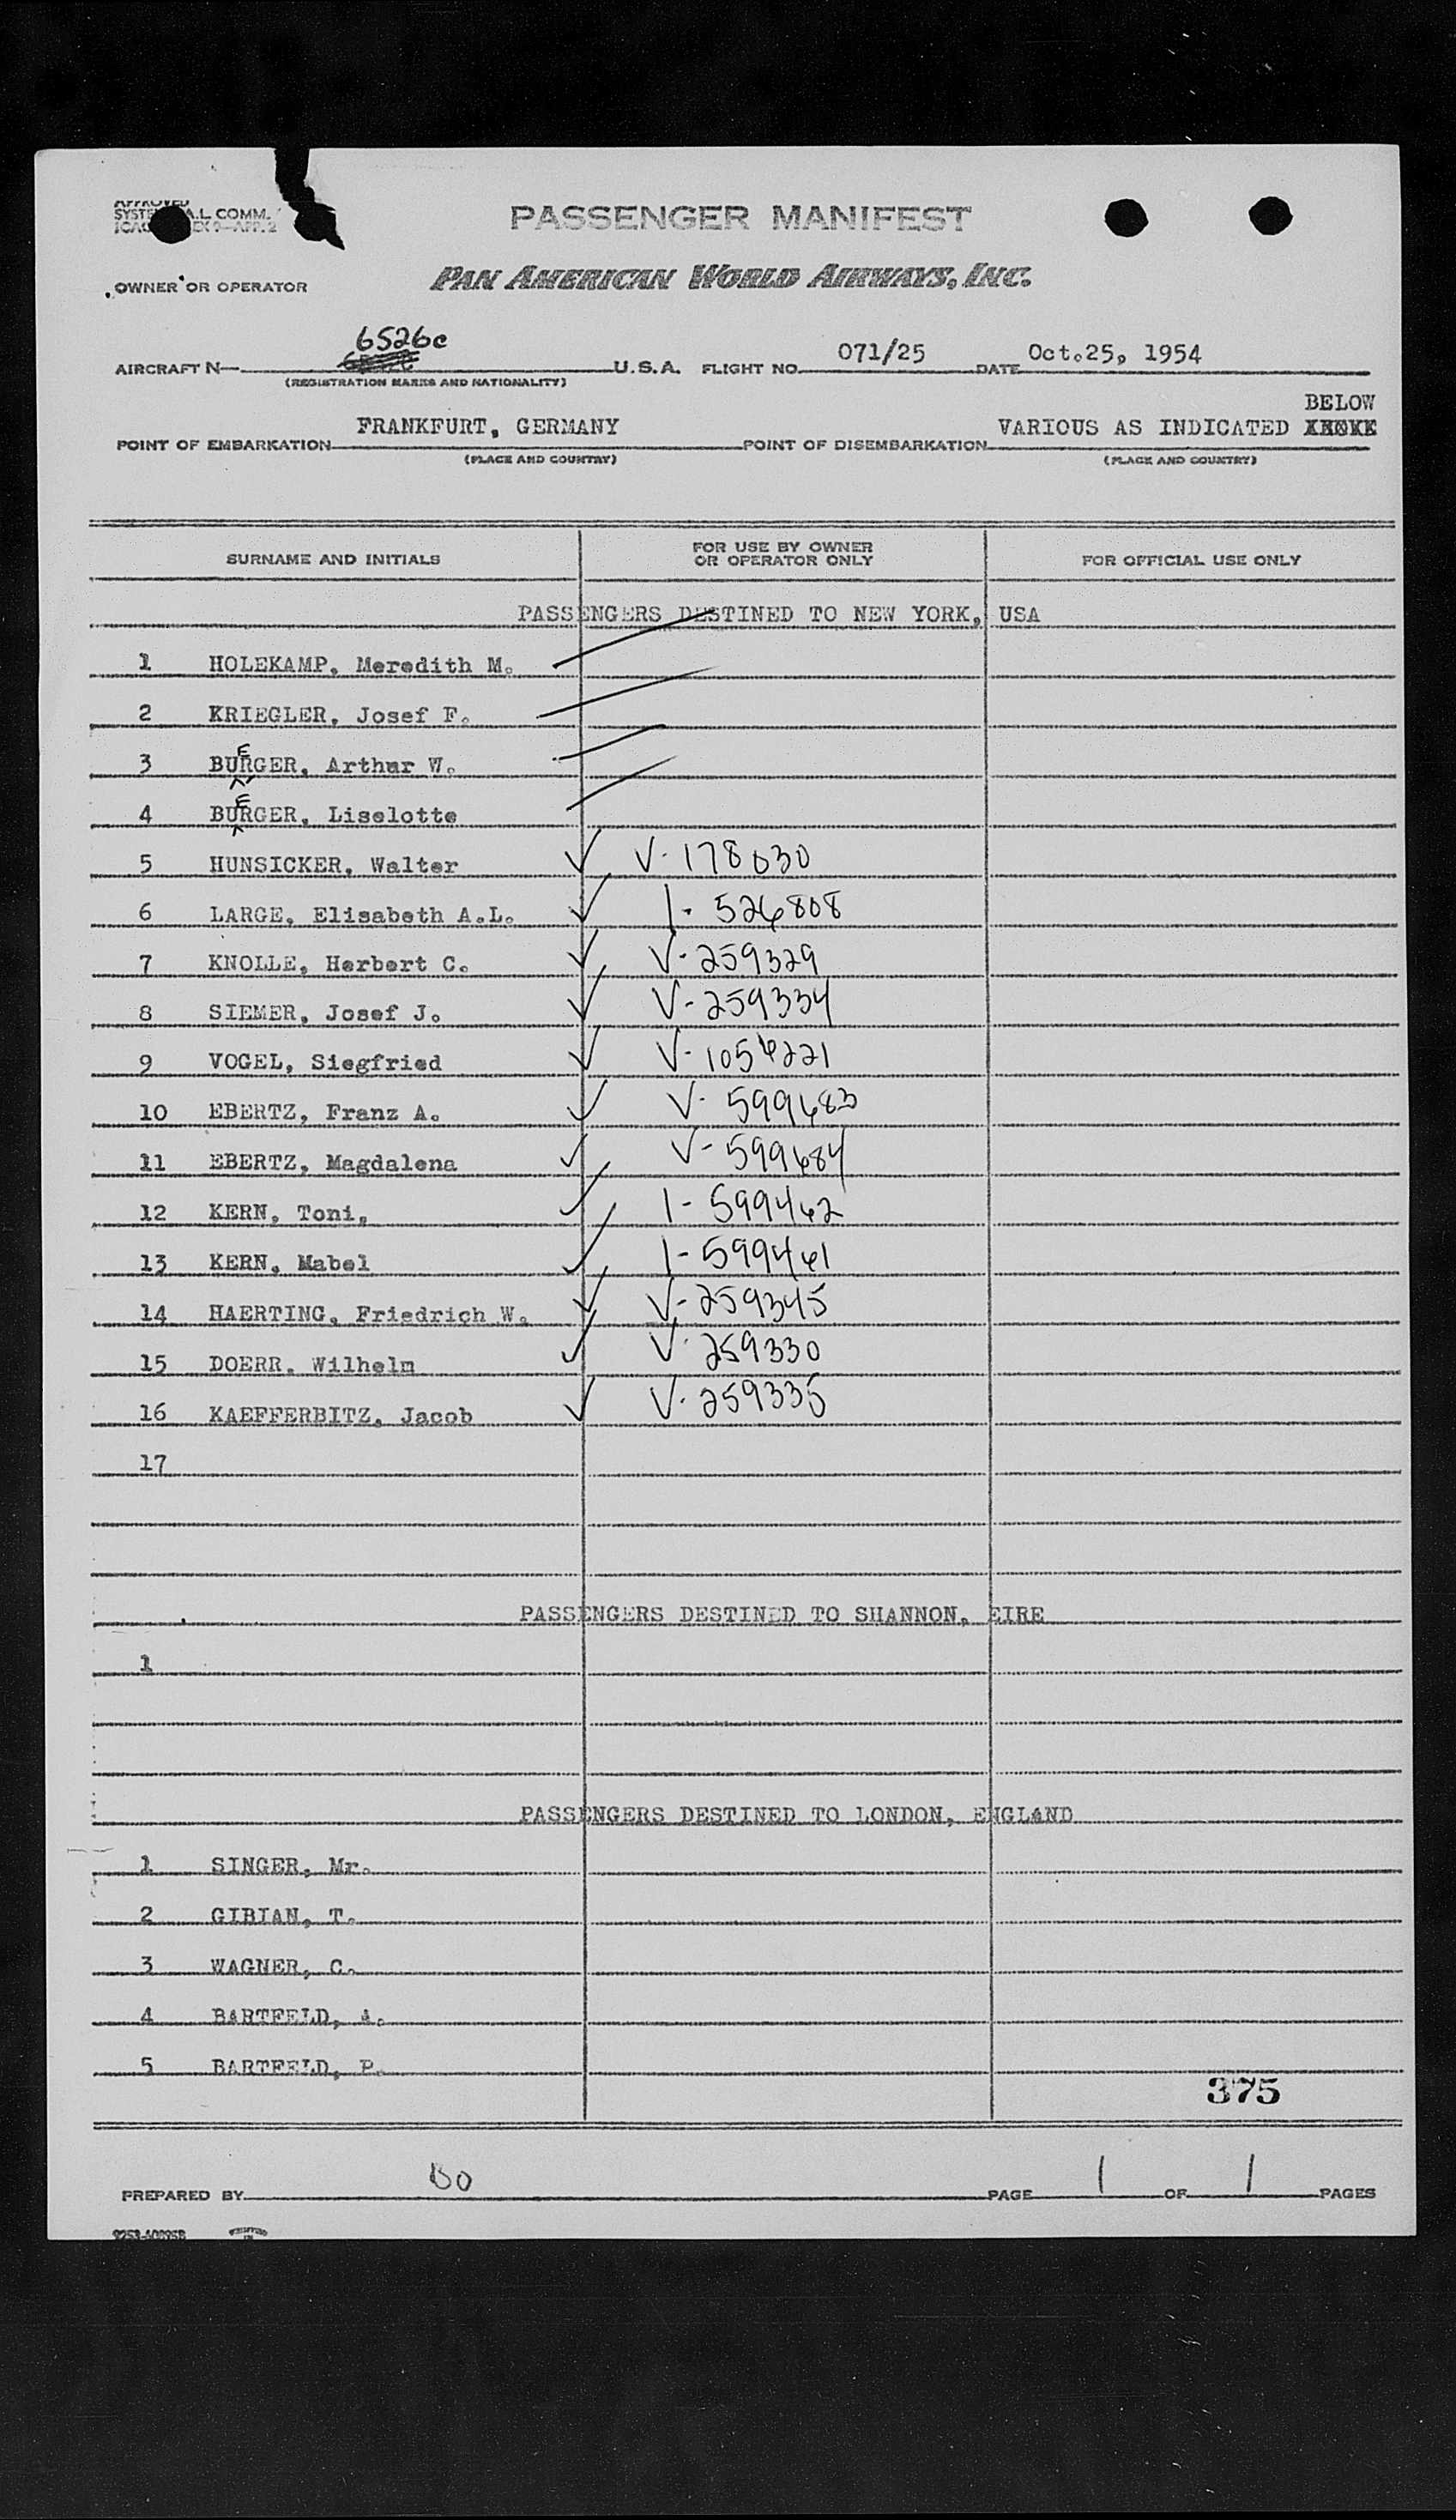 APPROVED
SYSTE A.L. COMM.
ICAO EX 9—APP. 2
PASSENGER MANIFEST
OWNER OR OPERATOR
PAN AMERICAN WORLD AIRWAYS, INC.
6526c
AIRCRAFT N— U.S.A. FLIGHT NO. 071/25 DATE Oct.25, 1954
(REGISTRATION MARKS AND NATIONALITY)
BELOW
POINT OF EMBARKATION FRANKFURT, GERMANY POINT OF DISEMBARKATION VARIOUS AS INDICATED
(PLACE AND COUNTRY) (PLACE AND COUNTRY)
SURNAME AND INITIALS FOR USE BY OWNER OR OPERATOR ONLY FOR OFFICIAL USE ONLY
PASSENGERS DESTINED TO NEW YORK, USA
1 HOLEKAMP, Meredith M.
2 KRIEGLER, Josef F.
E
3 BURGER, Arthur W.
E
4 BURGER, Liselotte
5 HUNSICKER, Walter ✓ V-178630
6 LARGE, Elisabeth A.L. ✓ I-526808
7 KNOLLE, Herbert C. ✓ V-259329
8 SIEMER, Josef J. ✓ V-259334
9 VOGEL, Siegfried ✓
10 EBERTZ, Franz A. ✓ V-599683
11 EBERTZ, Magdalena ✓ V-599684
12 KERN, Toni, ✓ I-599462
13 KERN, Mabel ✓ I-599461
14 HAERTING, Friedrich W. ✓ V-259345
15 DOERR, Wilhelm ✓ V-259330
16 KAEFFERBITZ, Jacob ✓ V-259335
17
PASSENGERS DESTINED TO SHANNON, EIRE
1
PASSENGERS DESTINED TO LONDON, ENGLAND
1 SINGER, Mr.
2 GIBIAN, T.
3 WAGNER, C.
4 BARTFELD, A.
5 BARTFELD, P.
375
PREPARED BY Bo PAGE 1 OF 1 PAGES